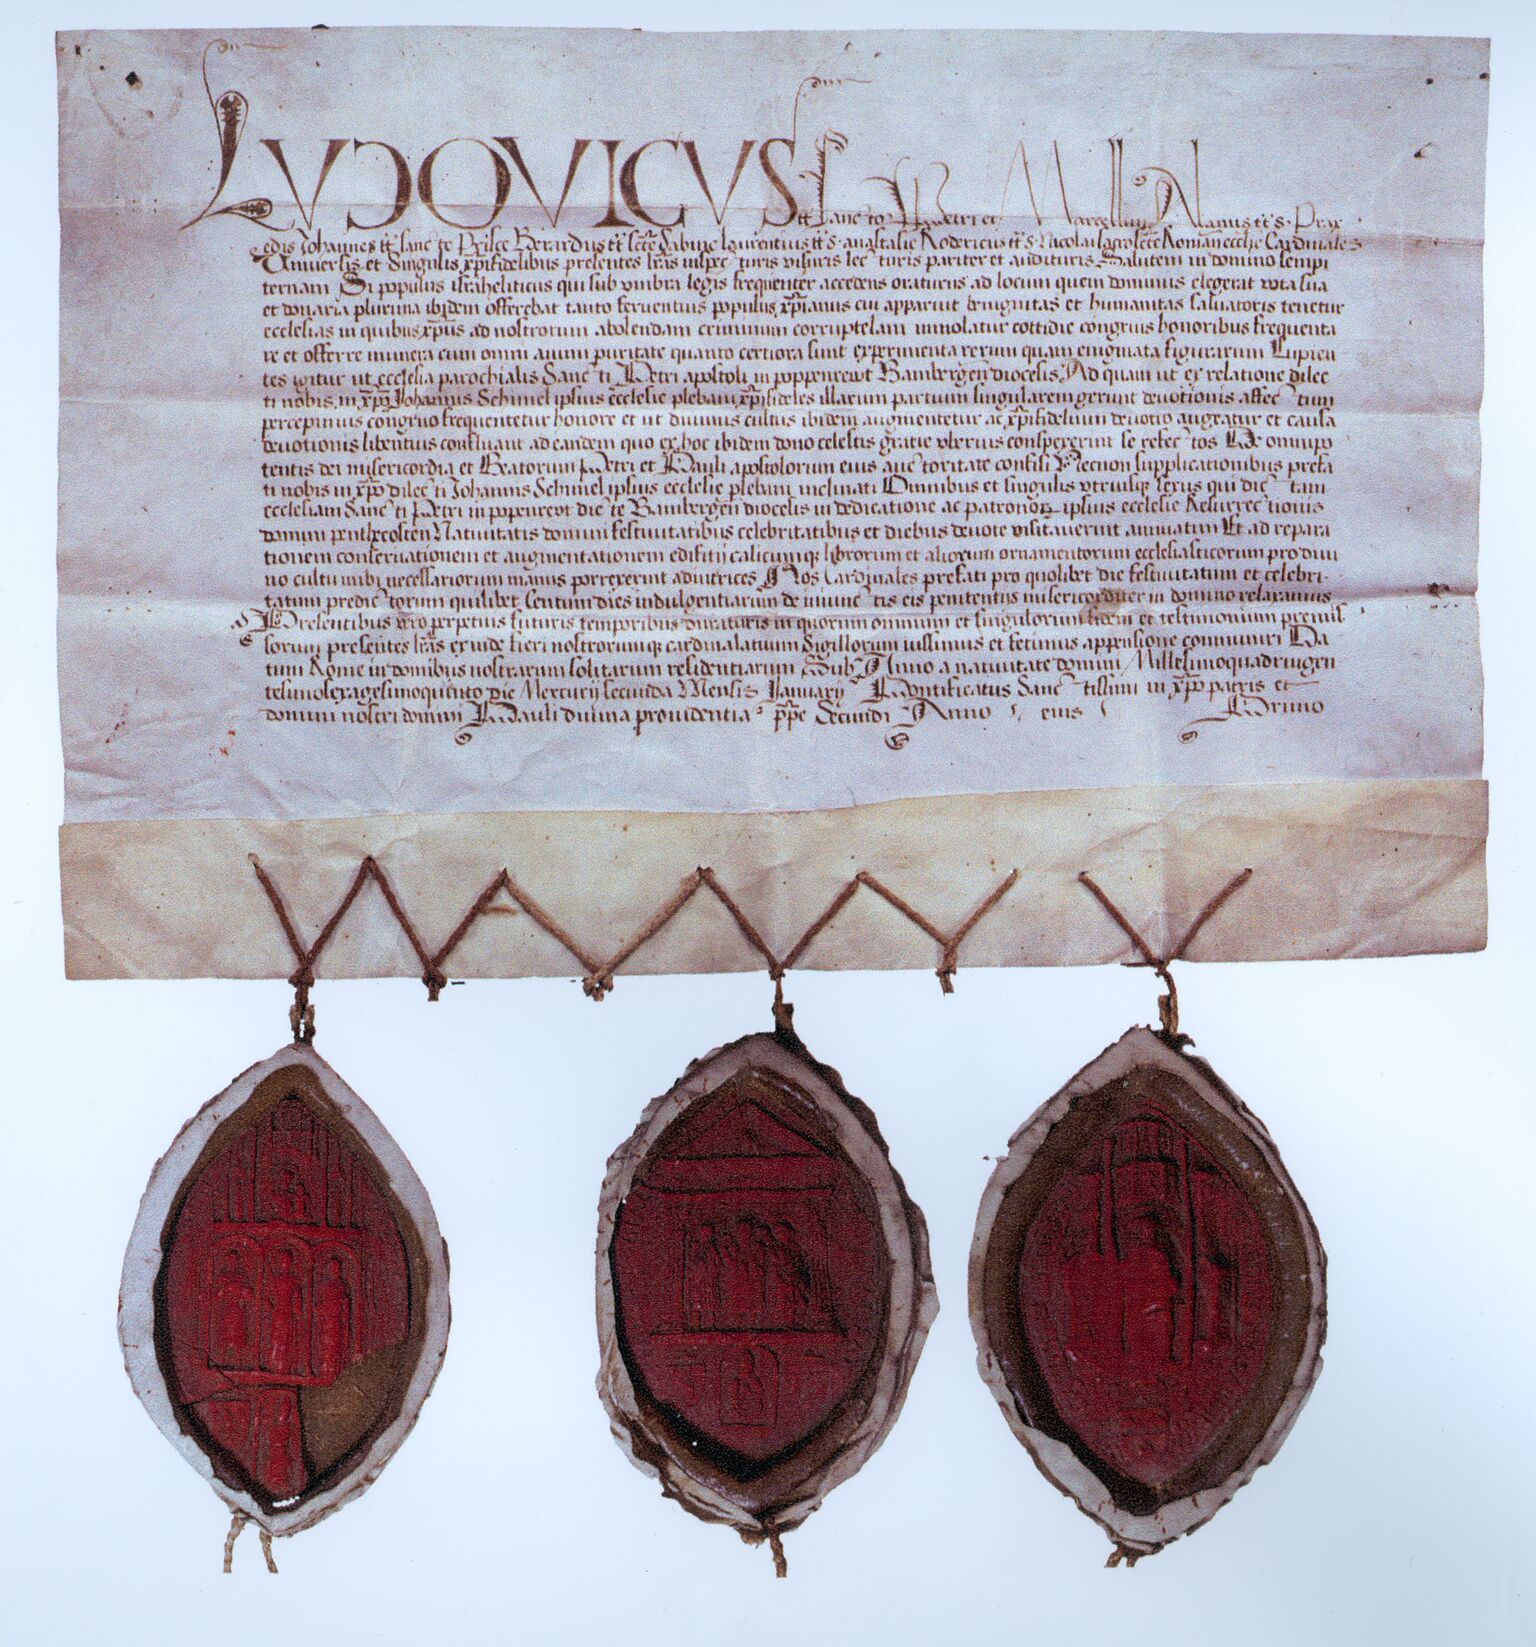 LUDOVICUS tt sanctor Petri et Marcellini Alanus tt s. Prax
edis Johannes tt sancte Prisce Berardus tt scte Sabine laurentius tt s. anastasie Rodericus tt s. Nicolai sacroscte Roman ecclie Cardinales
Universis et singulis xpifidelibus presentes lras inspecturis visuris lecturis pariter et audituris Salutem in domino sempi
ternam Si populus israheliticus qui sub umbra legis frequenter accedens oraturus ad locum quem dominus elegerat vota sua
et donaria plurima ibidem offerebat tanto ferventius populus xpianus cui apparuit benignitas et humanitas salvatoris tenetur
ecclesias in quibus xpus ad nostrorum abolendam criminum corruptelam immolatur cottidie congruis honoribus frequenta
re et offerre munera cum omni animi puritate quanto certiora sunt experimenta rerum quam enigmata figurarum Cupien
tes igitur ut ecclesia parochialis Sancti Petri apostoli in poppenrewt Bambergen diocesis Ad quam ut ex relatione dilec
ti nobis in xpo Johannis Schimel ipsius ecclesie plebani xpifideles illarum partium singularem gerunt devotionis affectum
percepimus congruo frequentetur honore et ut divinus cultus ibidem augmentetur ac xpifidelium devotio augeatur et causa
devotionis libentius confluant ad eandem quo ex hoc ibidem dono celestis gratie uberius conspexerint se refectos De omnipo
tentis dei misericordia et Beatorum Petri et Pauli apostolorum eius auctoritate confisi Necnon supplicationibus prefa
ti nobis in xpo dilecti Johannis Schimel ipsius ecclesie plebani inclinati Omnibus et singulis utriusq sexus qui dictam
ecclesiam Sancti Petri in popenrewt dicte Bambergen diocesis in dedicatione ac patronorum ipsius ecclesie Resurrectionis
domini penthecosten Nativitatis domini festivitatibus celebritatibus et diebus devote visitaverint annuatim Et ad repara
tionem conservationem et augmentationem edifitij calicumq librorum et aliorum ornamentorum ecclesiasticorum pro divi
no cultu inibi necessariorum manus porrexerint adiutrices Nos Cardinales prefati pro quolibet die festivitatum et celebri-
tatum predictorum quilibet Centum dies indulgentiarum de iniunctis eis penitentiis misericorditer in domino relaxamus
Presentibus vero perpetuis futuris temporibus duraturis in quorum omnium et singulorum fidem et testimonium premis
sorum presentes lras exinde fieri nostrorumq cardinalatuum Sigillorum iussimus et fecimus appensione communiri Da
tum Rome in domibus nostrarum solitarum residentiarum Sub Anno a nativitate domini Millesimoquadringen
tesimosexagesimoquinto die Mercurij secunda Mensis Januarij Pontificatus Sanctissimi in xpo patris et
domini nostri domini Pauli divina providentia ppe Secundi Anno eius Primo